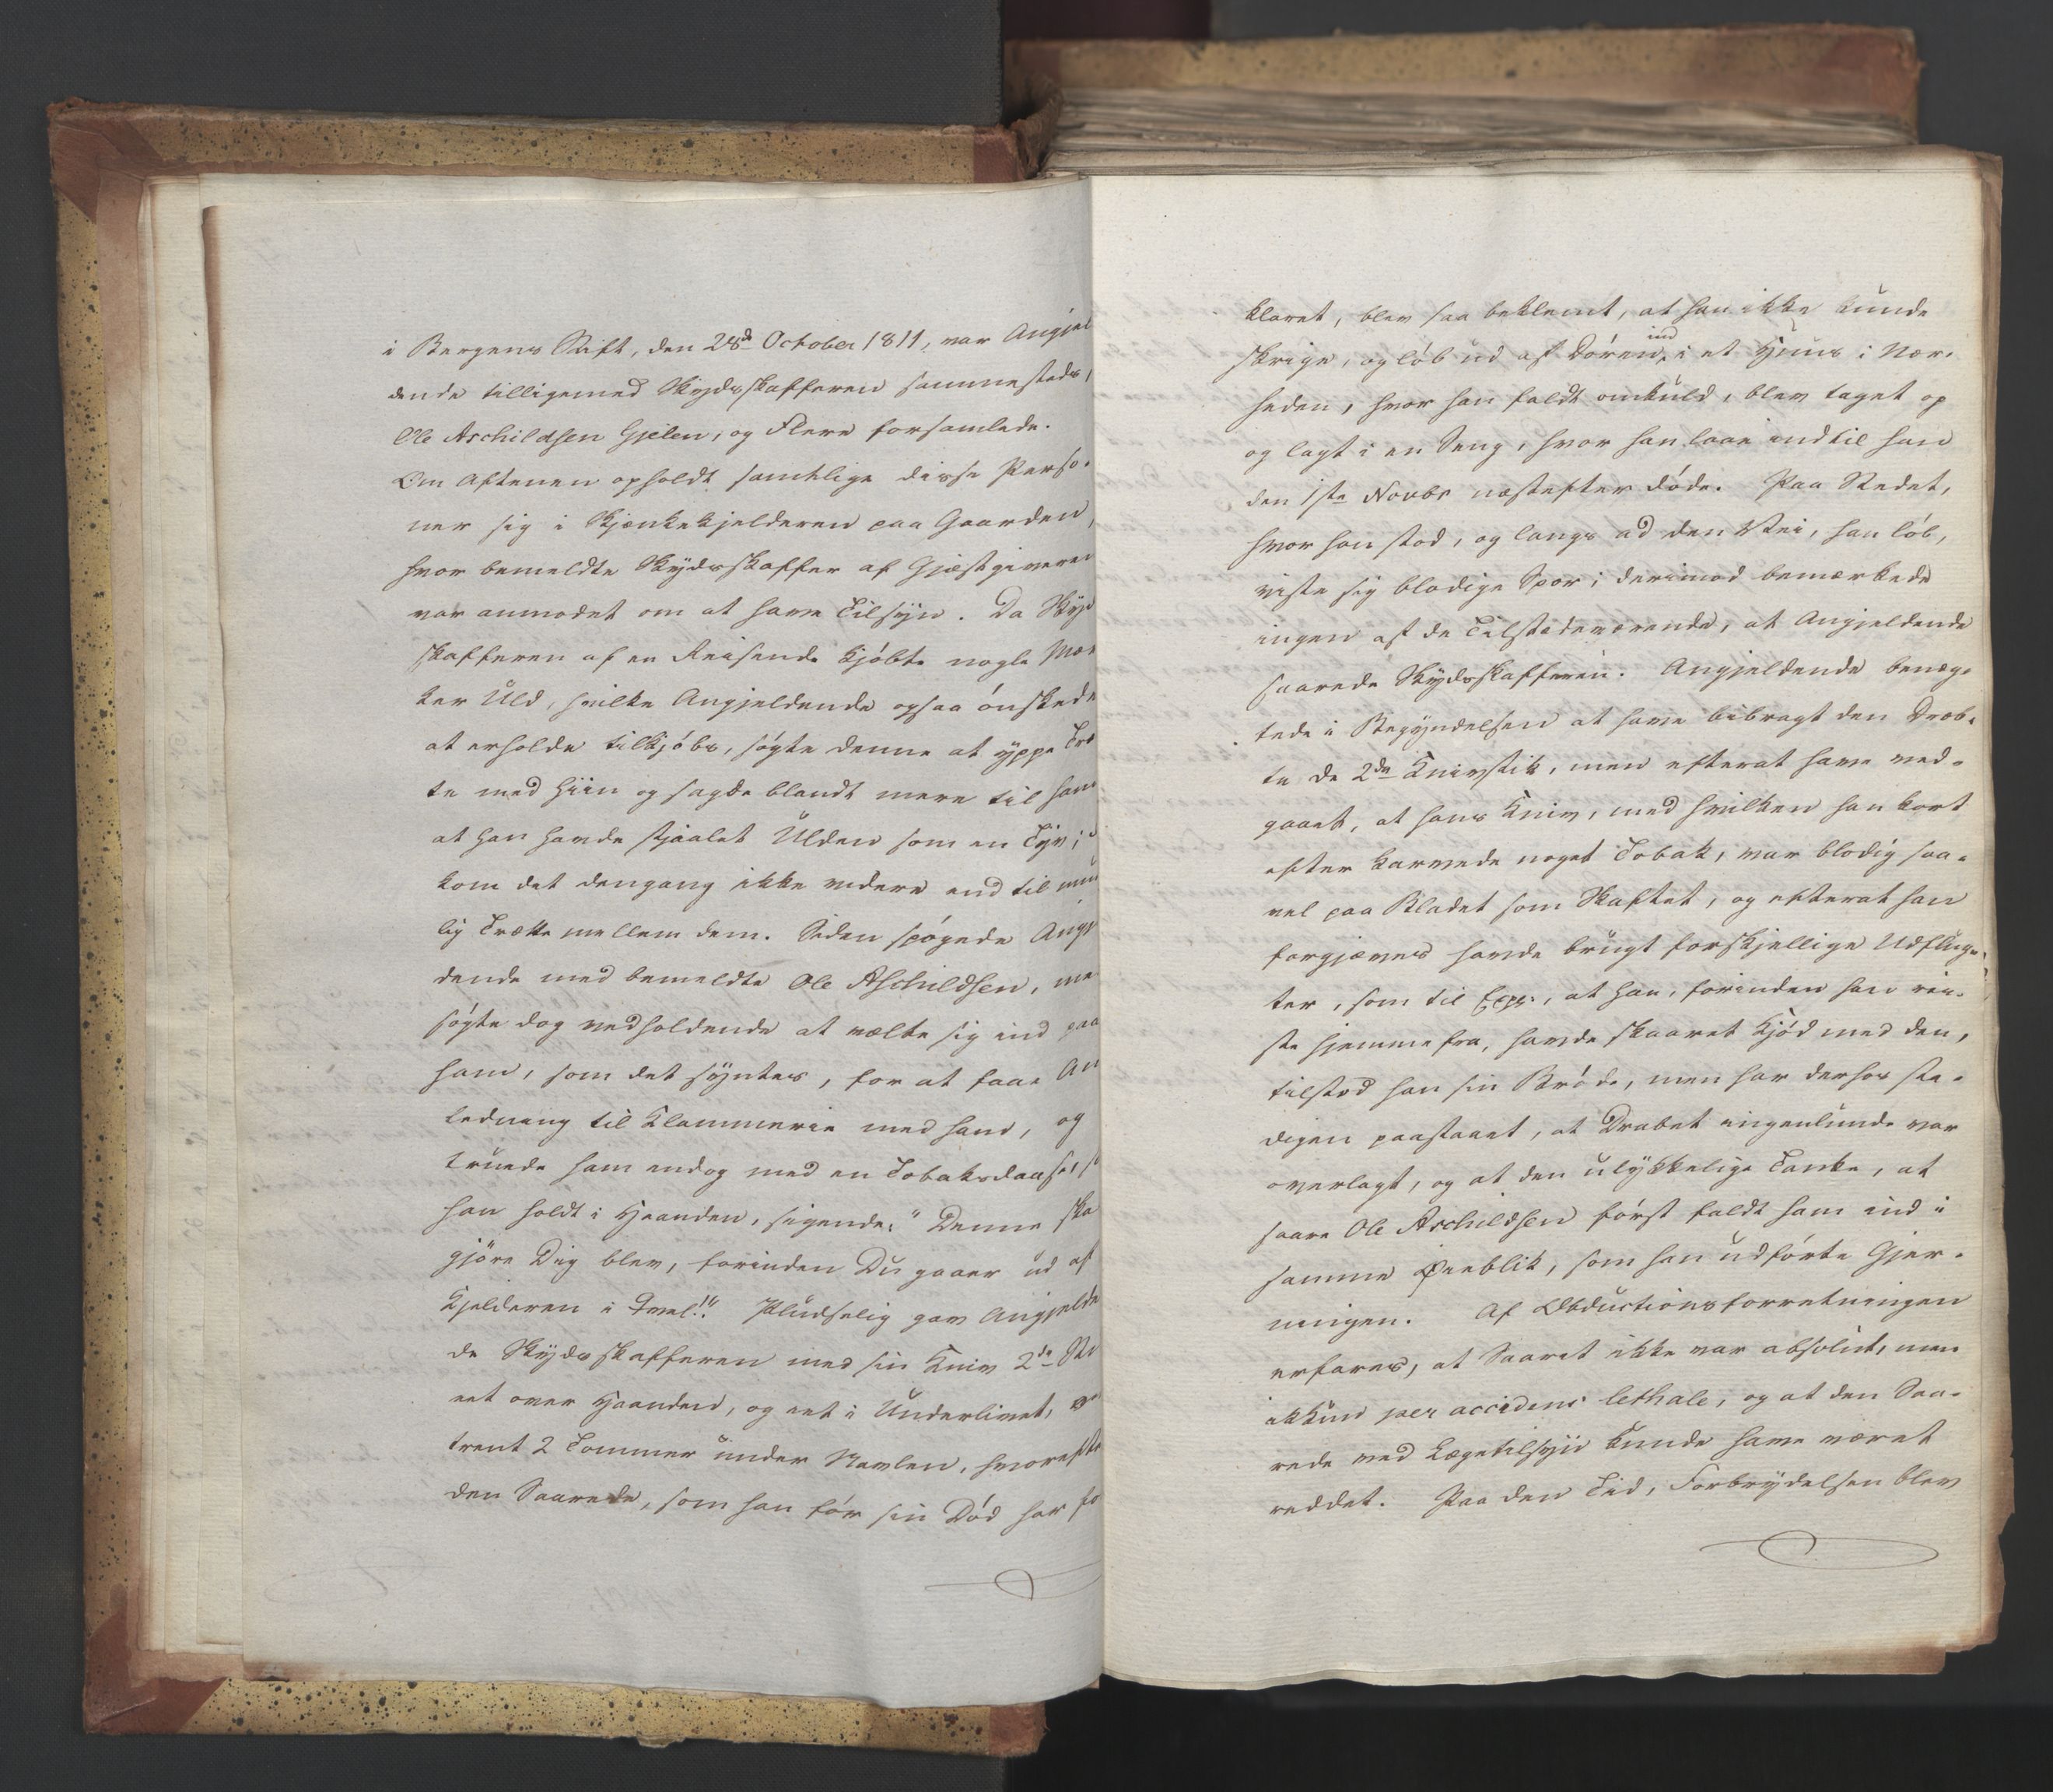 i Bergens Stift, den 28de October 1811, var Angjel
dende tilligemed Skydsskafferen sammesteds,
Ole Aschildsen Gjelen, og Flere forsamlede.
Om Aftenen opholdt samtlige disse Perso-
ner sig i Skjænkekjelderen paa Gaarden,
hvor bemeldte Skydsskaffer af Gjæstgiveren
var anmodet om at have Tilsyn. Da Skyd
skafferen af en Reisende kjøbte nogle Mar
ker Uld, hvilke Angjeldende ogsaa ønskede
at erholde tilkjøbs, søgte denne at yppe Træ
te med Hiin og sagde blandt mere til ham
at han havde stjaalet Ulden som en Tyv;
kom det dengang ikke videre end til mun
lig Trætte mellem dem. Siden spøgede Angj
dende med bemeldte Ole Aschildsen, me
søgte dog vedholdende at vælte sig ind paa
ham, som det syntes, for at faae An
ledning til Klammerie med ham, og
truede ham endog med en Tobaksdaase, s
han holdt i Haanden, sigende: "Denne ska
gjøre Dig blev, forinden Du gaaer ud af
Kjelderen i Qvel!" Pludselig gav Angjelde
de Skydsskafferen med sin Kniv 2de Sti
eet over Haanden, og eet i Underlivet, o
trent 2 Tommer under Navlen, hvorefte
den Saarede, som han før sin Død har fo
klaret, blev saa beklemt, at han ikke kunde
skrige, og løb ud af Døren, ind i et Huus i Nær-
heden, hvor han faldt omkuld, blev taget op
og lagt i en Seng, hvor han laae indtil han
den 1ste Novbr næstefter døde. Paa Stedet,
hvor han stod, og langs ad den Vei, han løb,
viste sig blodige Spor; derimod bemærkede
ingen af de Tilstedeværende, at Angjeldende
saarede Skydsskafferen. Angjeldende benæg-
tede i Begyndelsen at have bibragt den Dræb-
te de 2de Knivstik, men efterat have ved-
gaaet, at hans Kniv, med hvilken han kort
efter karvede noget Tobak, var blodig saa-
vel paa Bladet som Skaftet, og efterat han
forgjæves havde brugt forskjellige Udflug-
ter, som til Exp:, at han, forinden han rei-
ste hjemmefra, havde skaaret Kjød med den,
tilstod han sin Brøde, men har derhos sta-
digen paastaaet, at Drabet ingenlunde var
overlagt, og at den ulykkelige Tanke, at
saare Ole Aschildsen først faldt ham ind i
samme Øieblik, som han udførte Gjer-
ningen. Af Obductionsforretningen
erfares, at Saaret ikke var absolut, men
ikkun per accidens lethale, og at den Saa-
rede ved Lægetilsyn kunde have været
reddet. Paa den Tid, Forbrydelsen blev